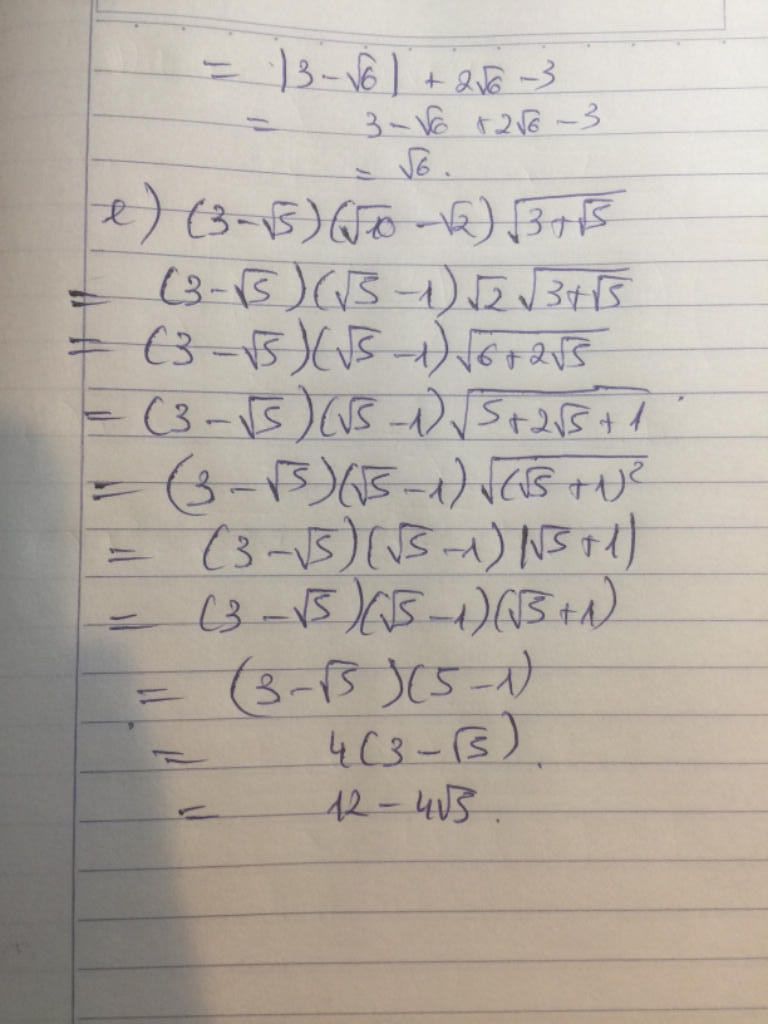 = |3 - √6| + 2√6 - 3
= 3 - √6 + 2√6 - 3
= √6.
e) (3 - √5)(√10 - √2) √(3 + √5)
= (3 - √5)(√5 - 1) √2 √(3 + √5)
= (3 - √5)(√5 - 1) √(6 + 2√5)
= (3 - √5)(√5 - 1) √(5 + 2√5 + 1)
= (3 - √5)(√5 - 1) √((√5 + 1)²)
= (3 - √5)(√5 - 1) |√5 + 1|
= (3 - √5)(√5 - 1)(√5 + 1)
= (3 - √5)(5 - 1)
= 4(3 - √5).
= 12 - 4√5.